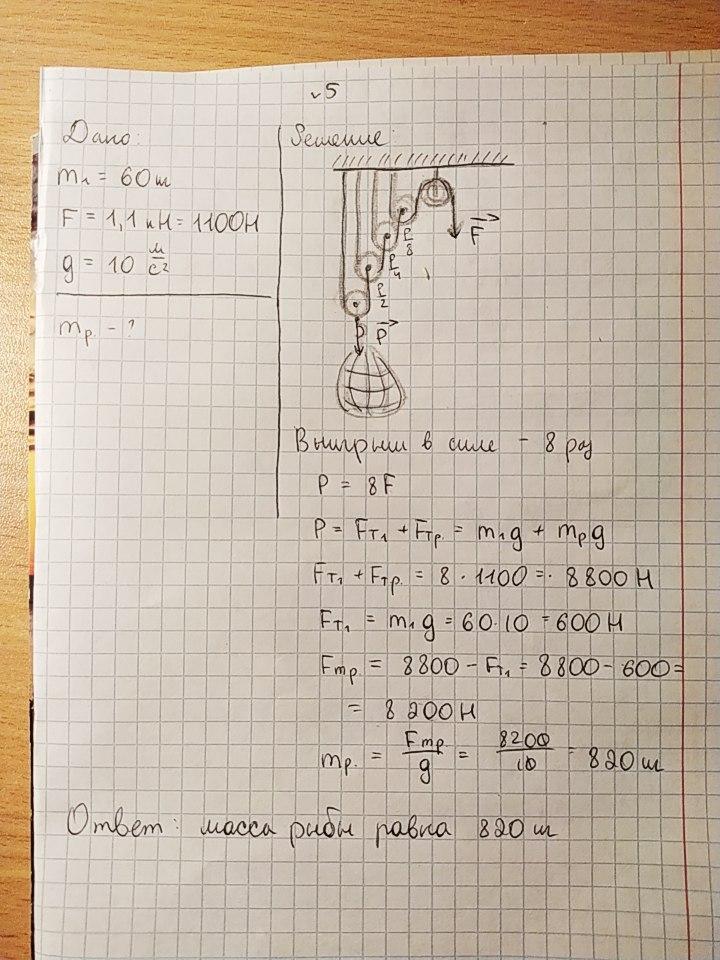 √5
Дано:
m₁ = 60 кг
F = 1,1 кН = 1100Н
g = 10 м/с²
mр. - ?
Решение:
F
P/8
P/4
P/2
P
Выигрыш в силе - 8 раз
P = 8F
P = Fт₁ + Fтр. = m₁g + mрg
Fт₁ + Fтр. = 8 · 1100 = · 8800 Н
Fт₁ = m₁g = 60·10 = 600 Н
Fтр. = 8800 - Fт₁ = 8800 - 600 =
= 8200Н
mр. = Fтр./g = 8200/10 = 820 кг
Ответ: масса рыбы равна 820 кг